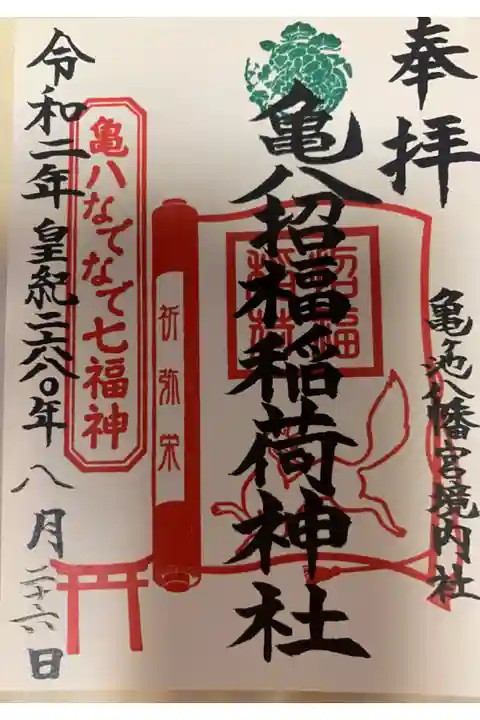 奉拝
亀ヶ池八幡宮境内社
亀八招福稲荷神社
招福
稲荷
祈弥栄
亀八なでなで七福神
令和二年皇紀二六八〇年八月二十六日